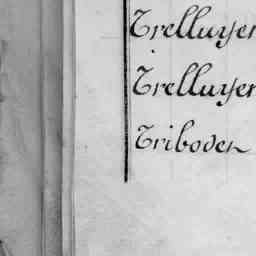 Trelluyer
Trelluyer
Triboden